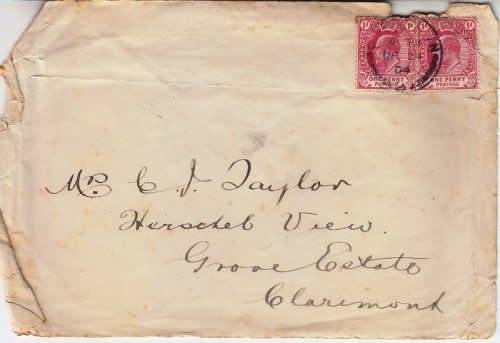 1d 1d
ONE PENNY ONE PENNY
POSTAGE
Mrs C. J. Taylor
Herschel View.
Grove Estate
Claremont